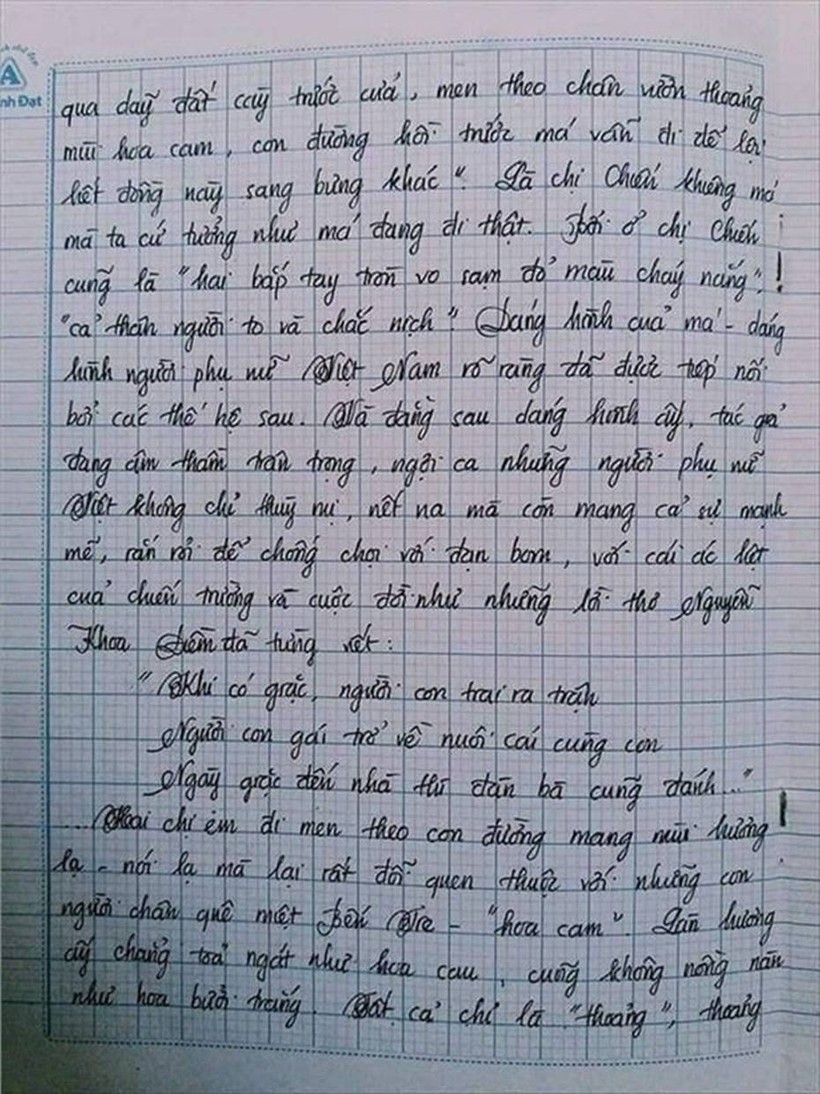 A
nh Đạt
qua dãy đất cày trước cửa, men theo chân vườn thoảng
mùi hoa cam, con đường hồi trước má vẫn đi để lội
hết đồng này sang bưng khác". Là chị Chiến khiêng má
mà ta cứ tưởng như má đang đi thật. Bởi ở chị Chiến
cũng là "hai bắp tay tròn vo sạm đỏ màu cháy nắng",
"cả thân người to và chắc nịch". Dáng hình của má - dáng
hình người phụ nữ Việt Nam rõ ràng đã được tiếp nối
bởi các thế hệ sau. Và đằng sau dáng hình ấy, tác giả
đang âm thầm trân trọng, ngợi ca những người phụ nữ
Việt không chỉ thuỳ mị, nết na mà còn mang cả sự mạnh
mẽ, rắn rỏi để chống chọi với đạn bom, với cái ác liệt
của chiến trường và cuộc đời như những lời thơ Nguyễn
Khoa Điềm đã từng viết:
"Khi có giặc, người con trai ra trận
Người con gái trở về nuôi cái cùng con
Ngày giặc đến nhà thì đàn bà cũng đánh..."
Hai chị em đi men theo con đường mang mùi hương
lạ - nói lạ mà lại rất đỗi quen thuộc với những con
người chân quê miệt Bến Tre - "hoa cam". Làn hương
ấy chẳng toả ngát như hoa cau, cũng không nồng nàn
như hoa bưởi trắng. Tất cả chỉ là "thoảng", thoảng